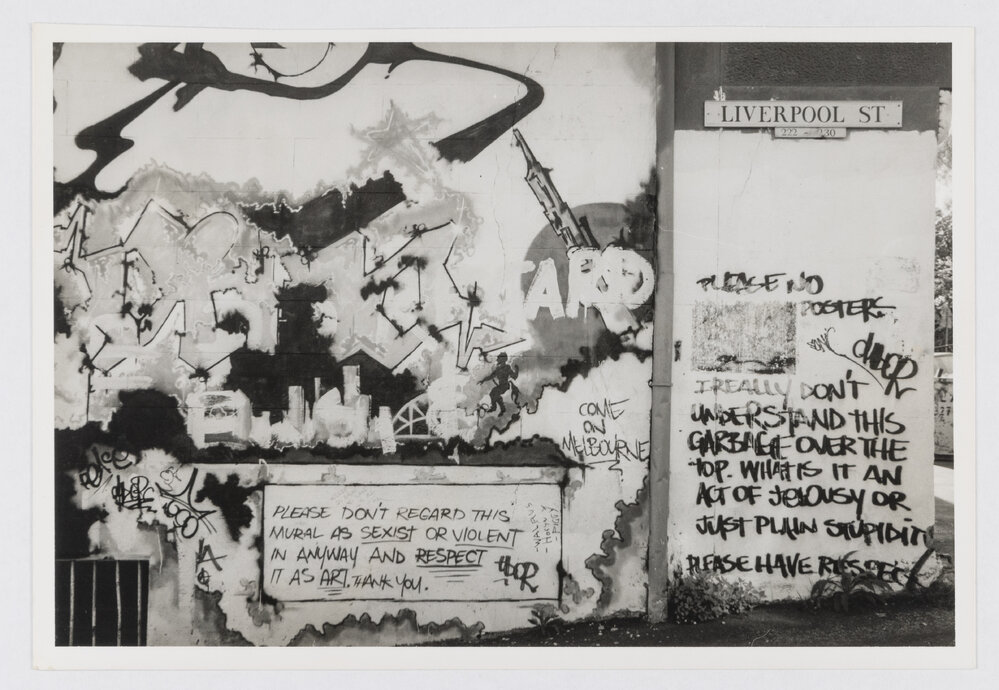 LIVERPOOL ST
222 - 230
PLEASE NO
POSTERS.
I REALLY DON'T
UNDERSTAND THIS
GARBAGE OVER THE
TOP. WHAT IS IT AN
ACT OF JEOLOUSY OR
JUST PLAIN STUPIDIT
PLEASE HAVE RESPECT
COME
ON
MELBOURNE
PLEASE DON'T REGARD THIS
MURAL AS SEXIST OR VIOLENT
IN ANYWAY AND RESPECT
IT AS ART. THANK YOU.